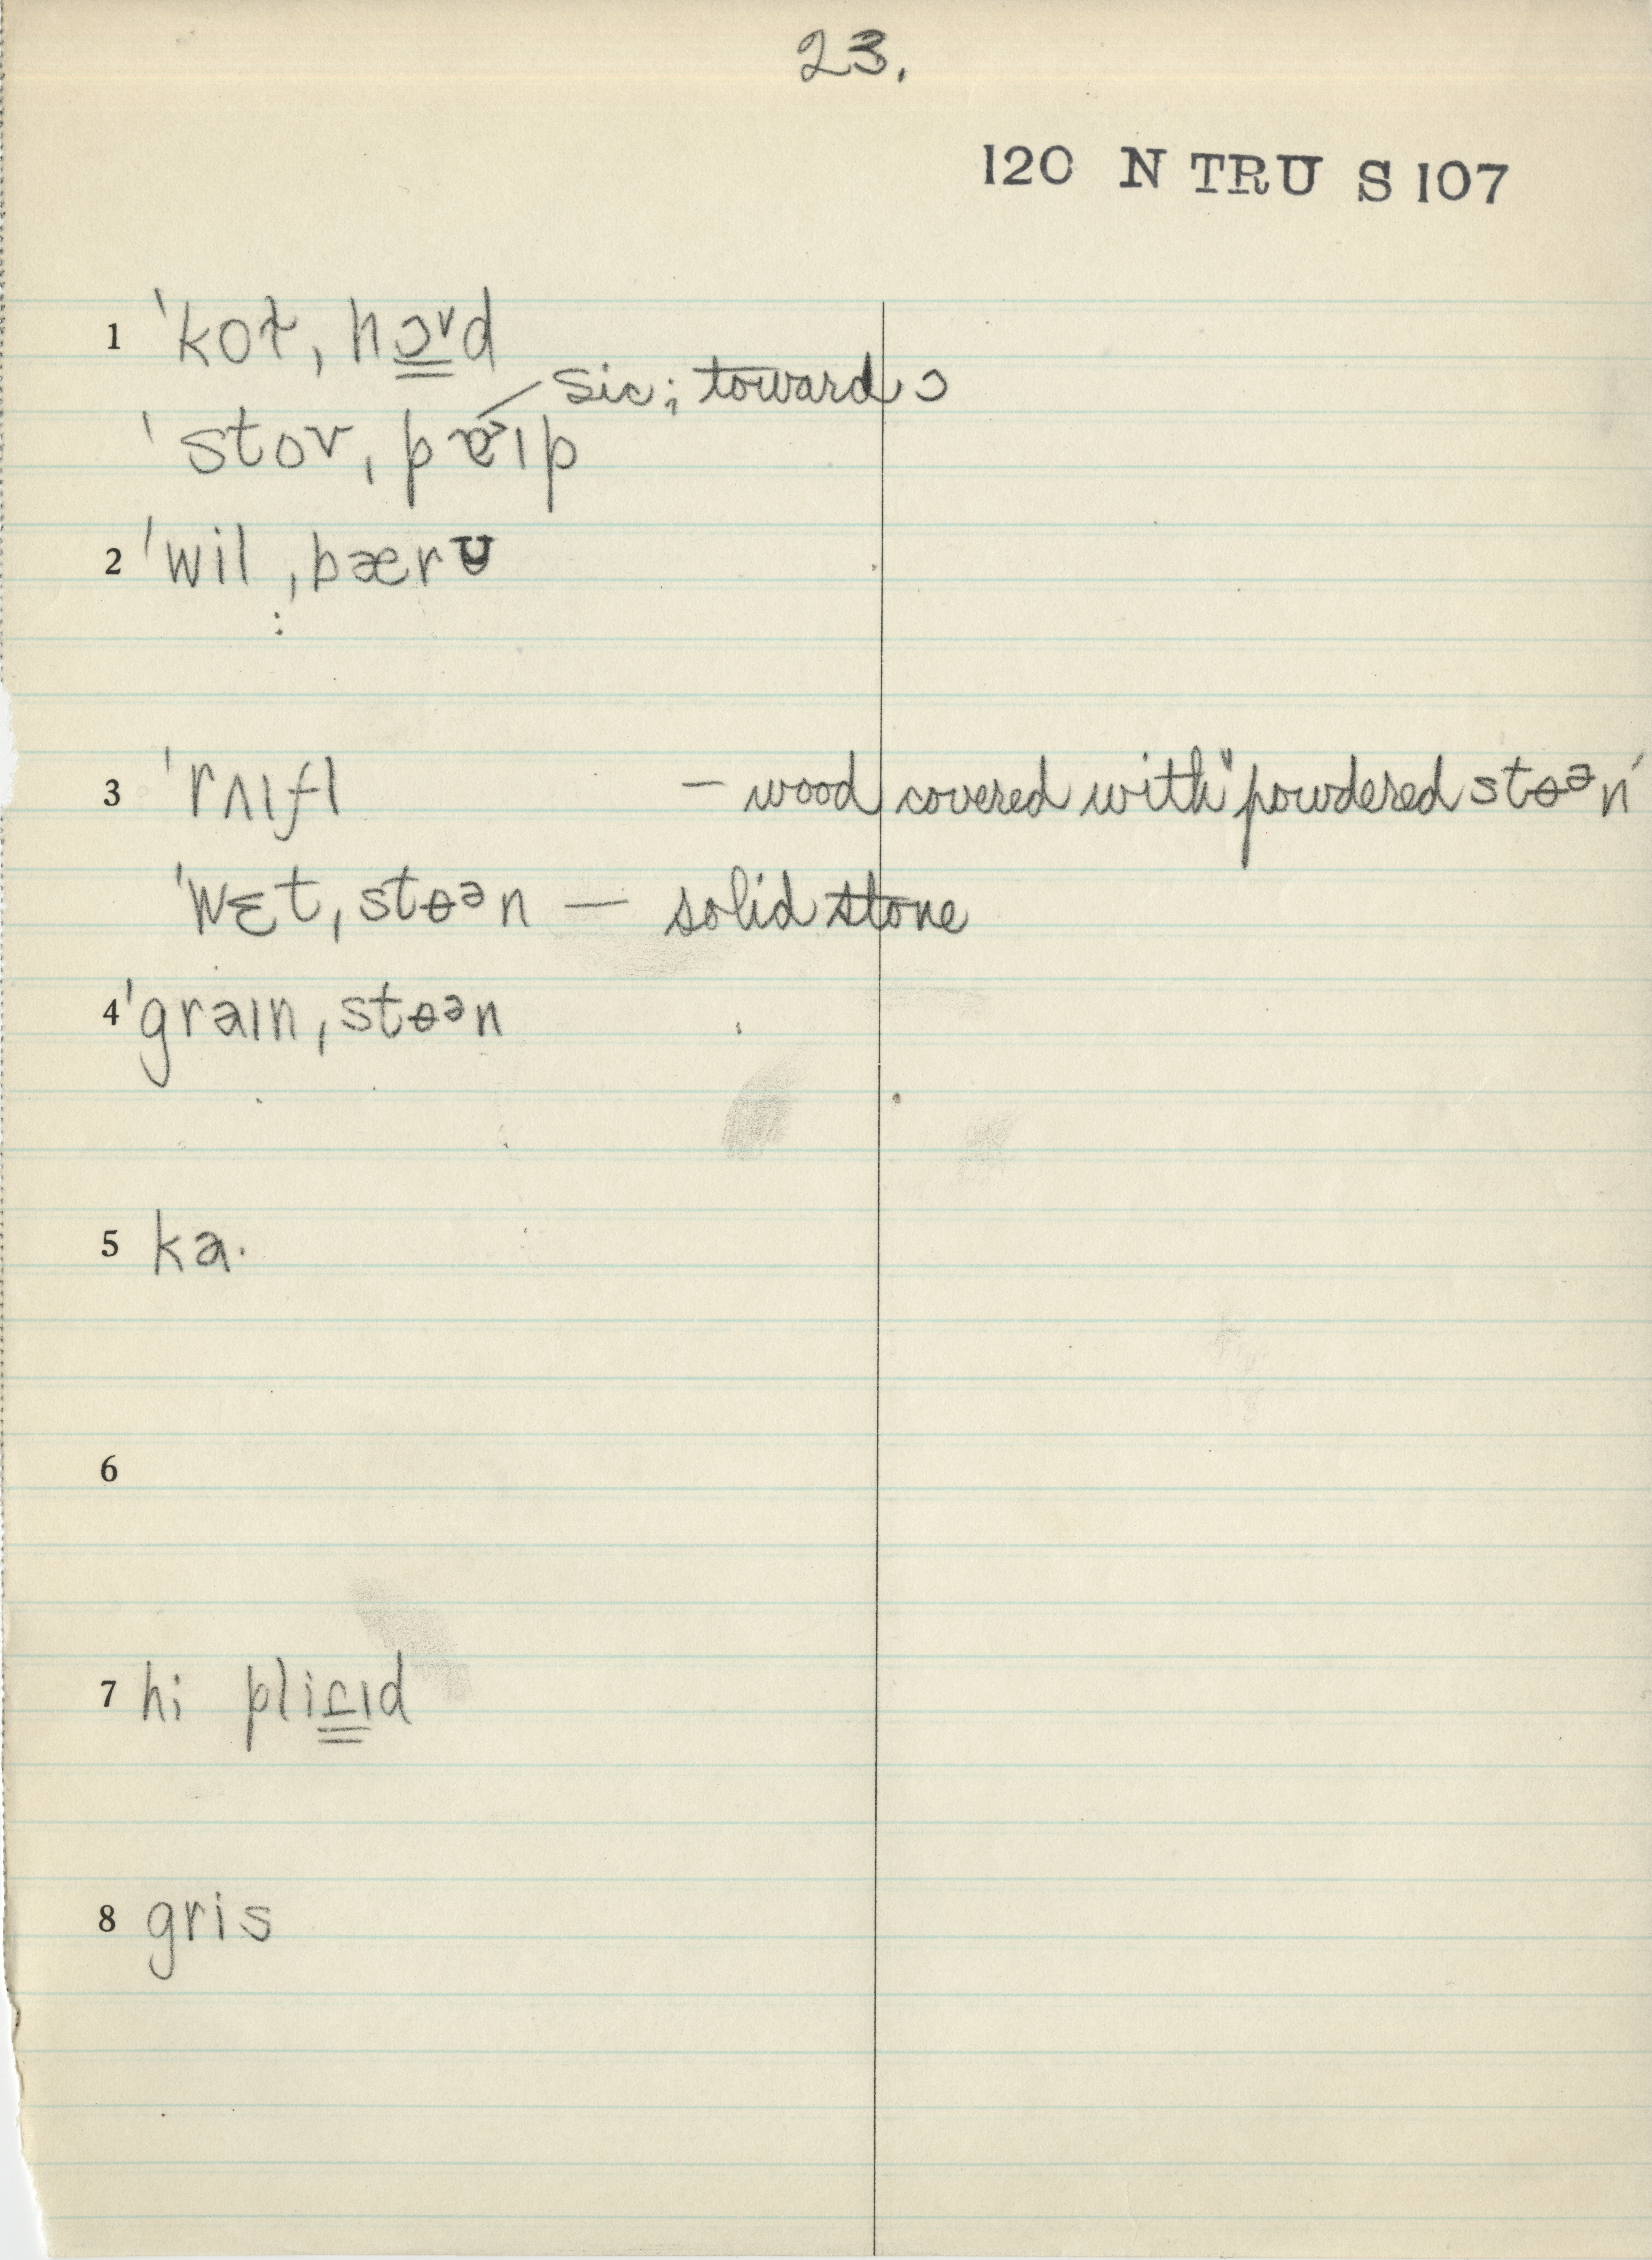 23.
120 N TRU S 107
1 ˈkoɫ, hɔ̳ᵛd
sic; toward ɔ
ˈstov, pɐ˃ɪp
2 ˈwil ˌbærʊ
:
3 ˈrʌɪfl — wood covered with "powdered stɵᵊn"
ˈwɛt ˌstɵᵊn — solid stone
4 ˈgraɪn ˌstɵᵊn
5 ka·
6
7 hi pliɾ̳ɪd
8 gris